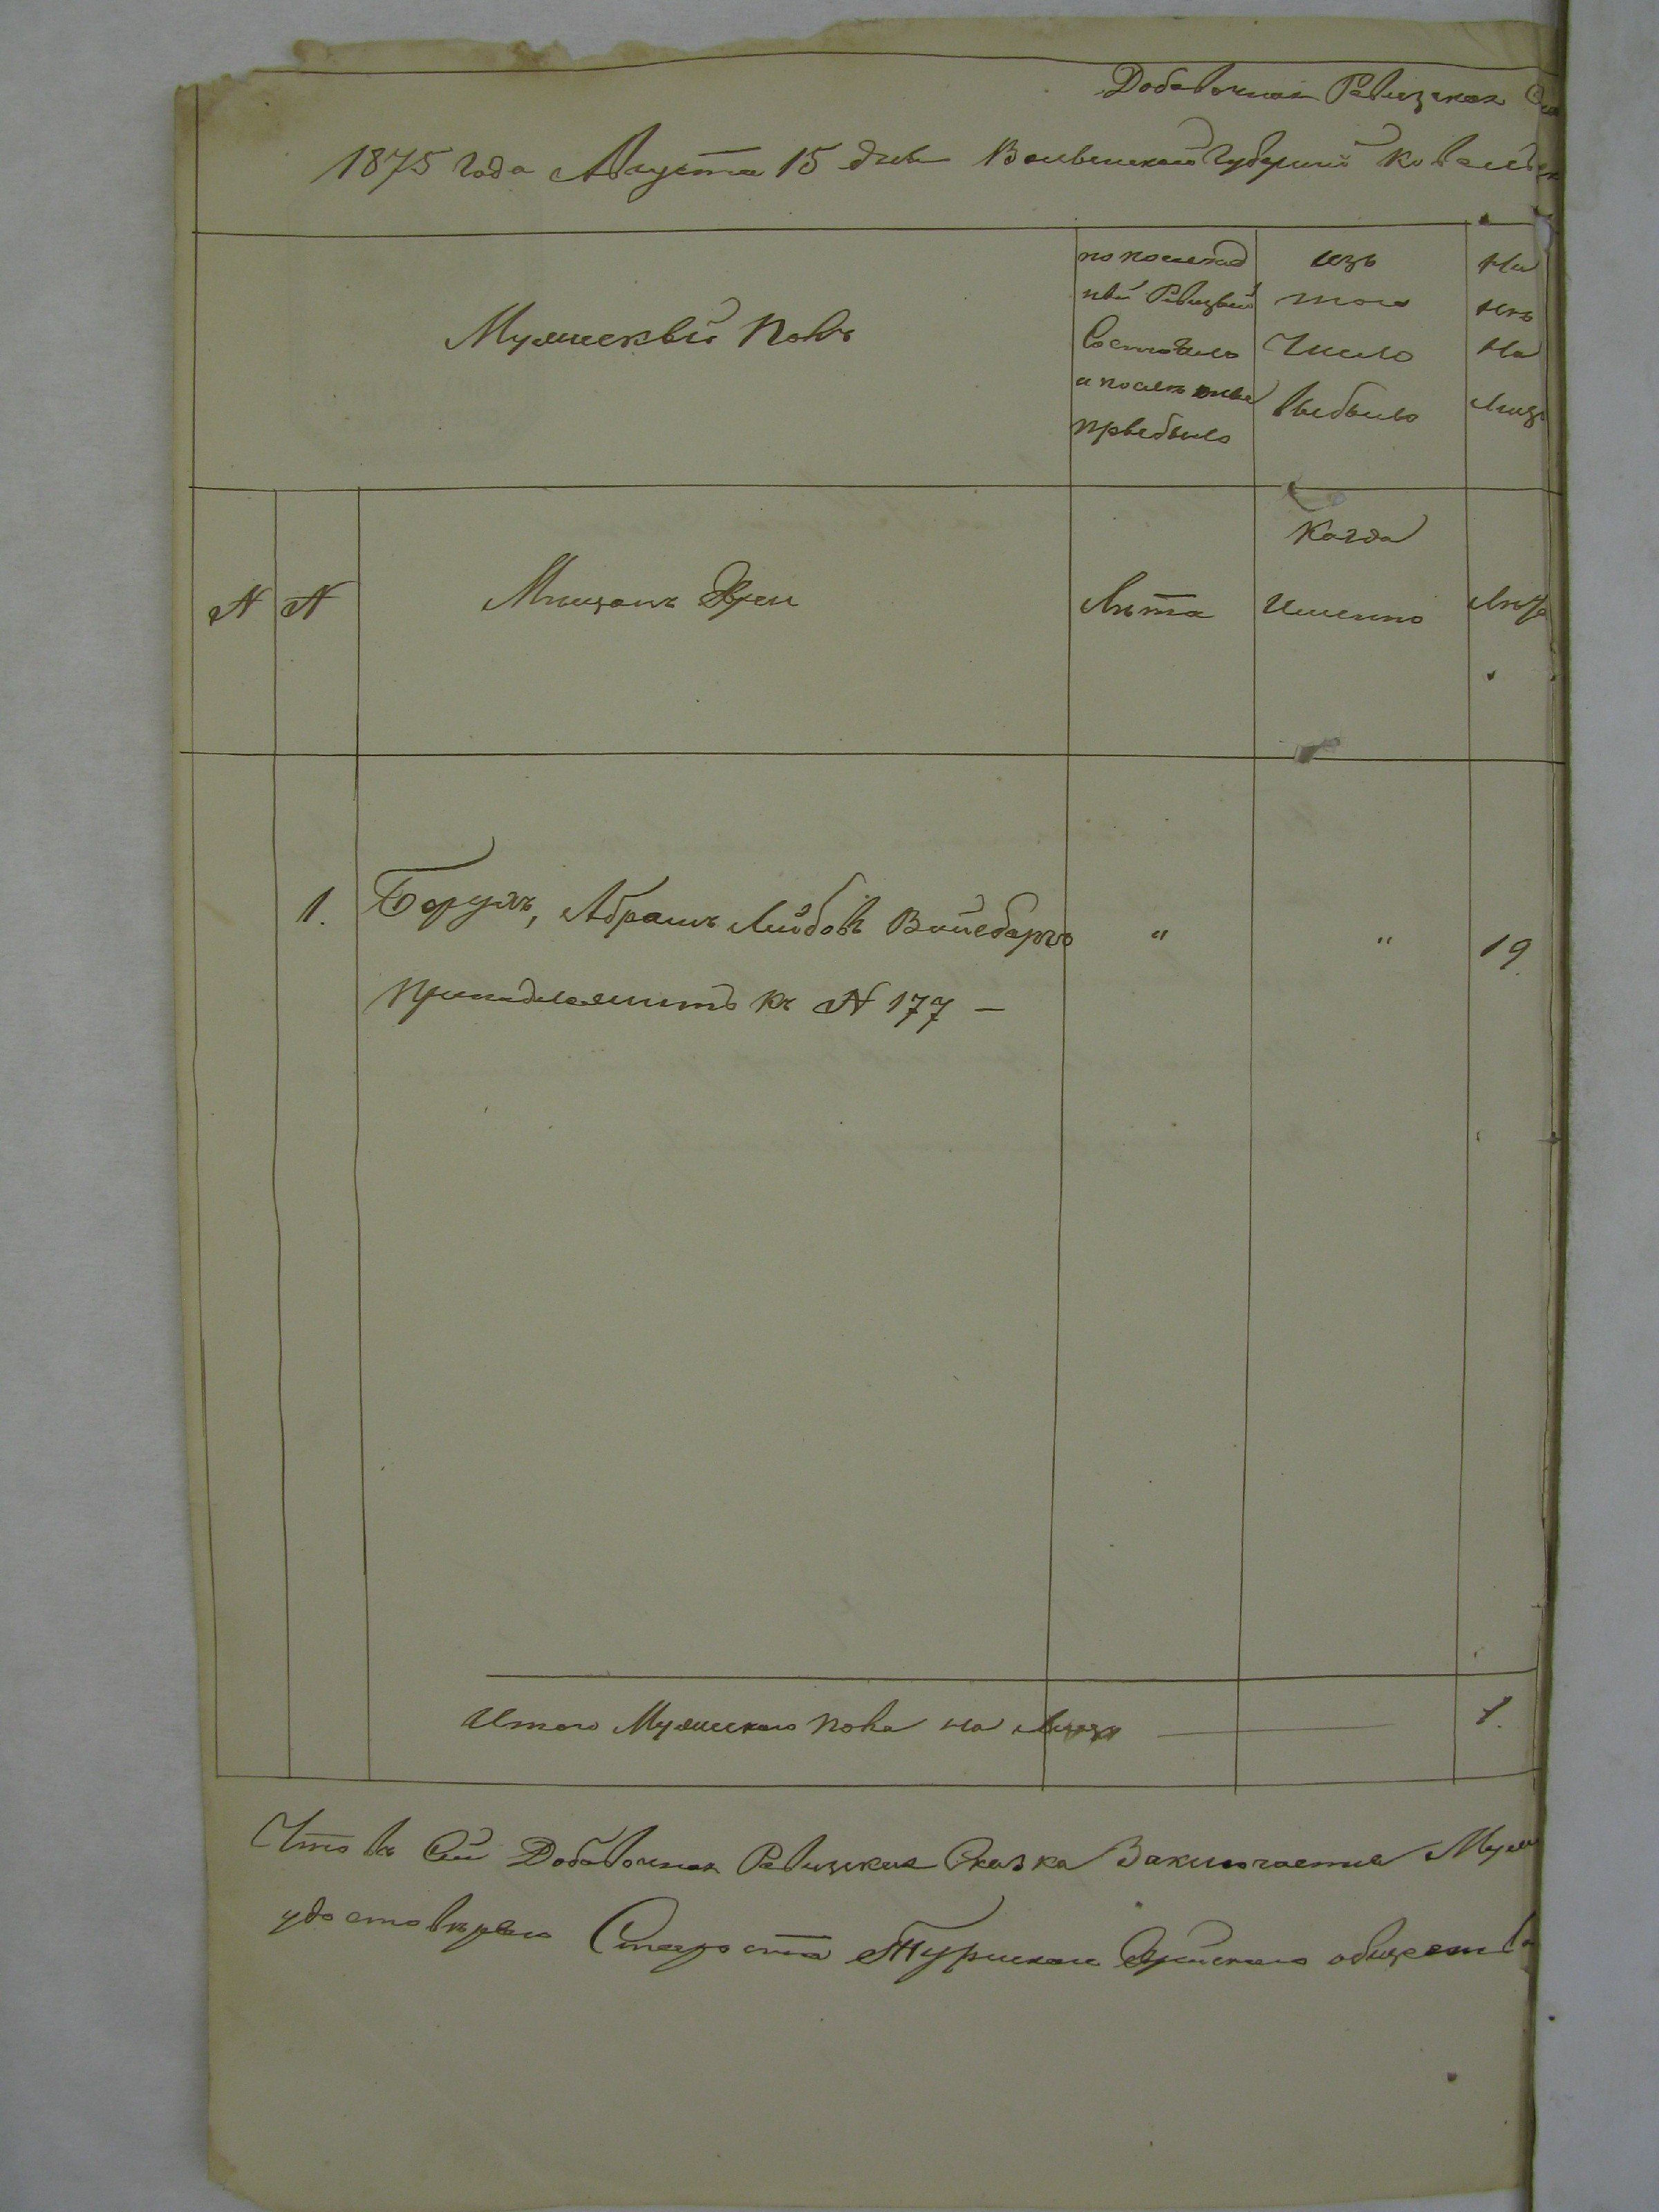 Добавочная Ревизская
1875 года Августа 15 дня Волынской губерніи Ковельск
Мужескый полъ
по послед
ней Ревизвіи
Состояло
и после оные
прыбыло
изъ
того
Числа
выбыло
На
Лицо
N N
Мищанъ Евреи
Лѣта
Когда
Именно
Лѣта
1. Борухъ, Абрамъ Лейбовъ Вайсбергъ " " 19
принадлежитъ къ N 177 —
Итого Мужеска пола на лицо — 1.
Что въ Сей Добавочная Ревизская Сказка Заключаетца Муж
удостовѣряю Староста Турийскаго Еврейскаго общества